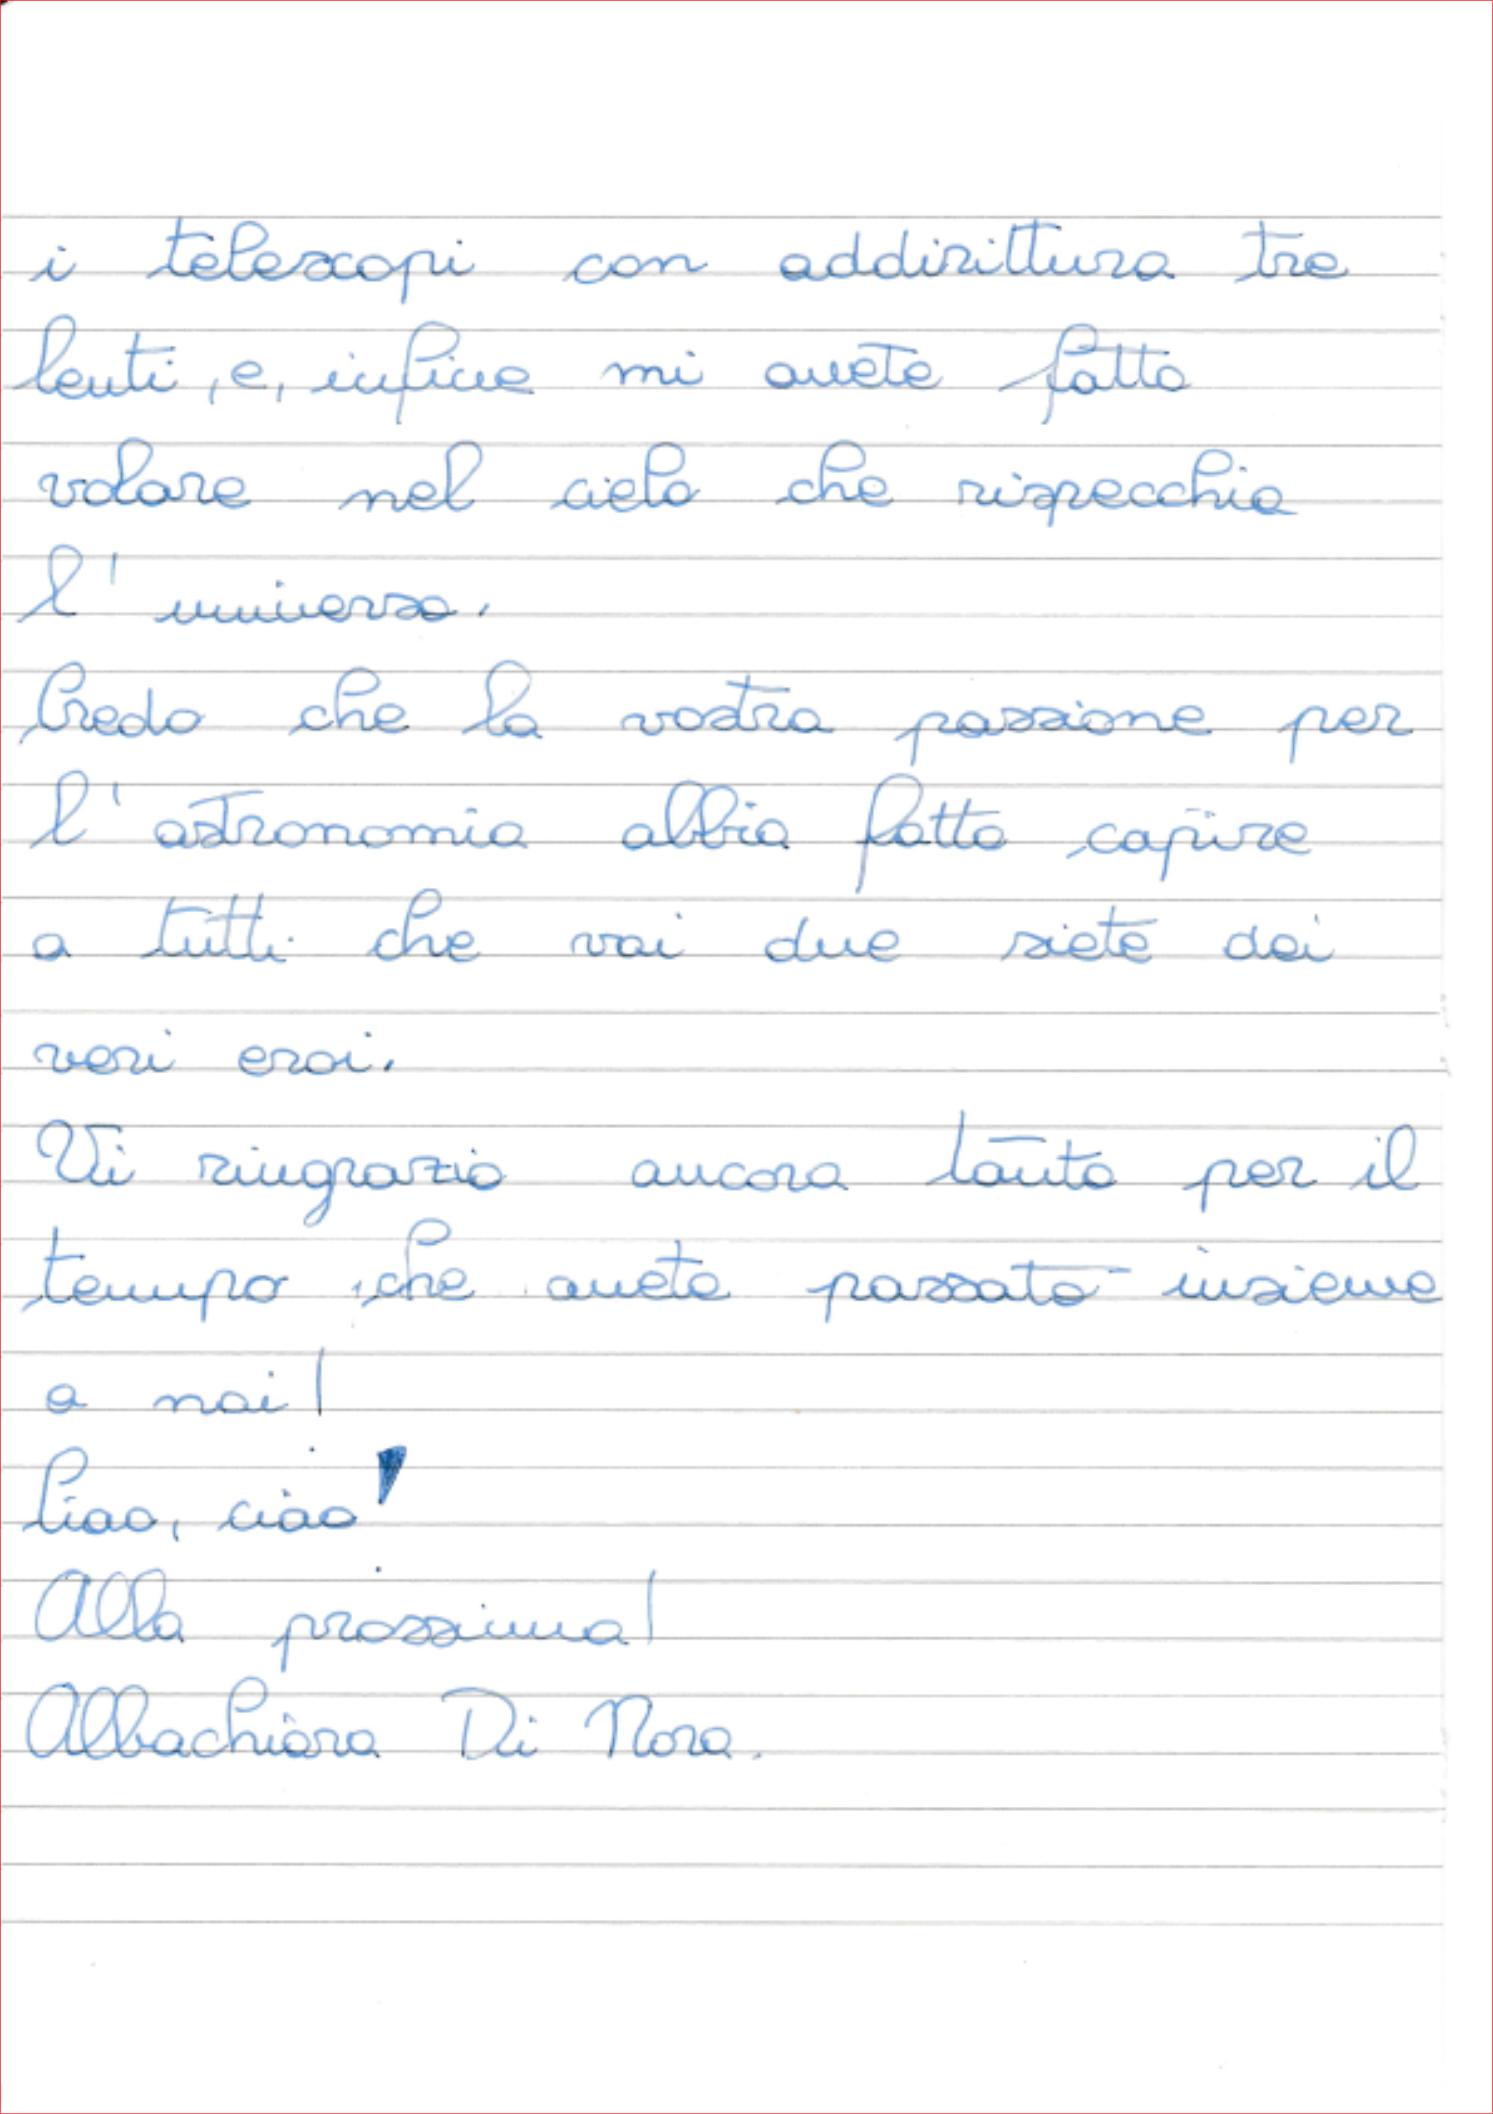 i telescopi con addirittura tre
lenti, e, infine mi avete fatto
volare nel cielo che rispecchia
l'universo.
Credo che la vostra passione per
l'astronomia abbia fatto capire
a tutti che voi due siete dei
veri eroi.
Vi ringrazio ancora tanto per il
tempo che avete passato insieme
a noi!
Ciao, ciao!
Alla prossima!
Albachiara Di Nora.